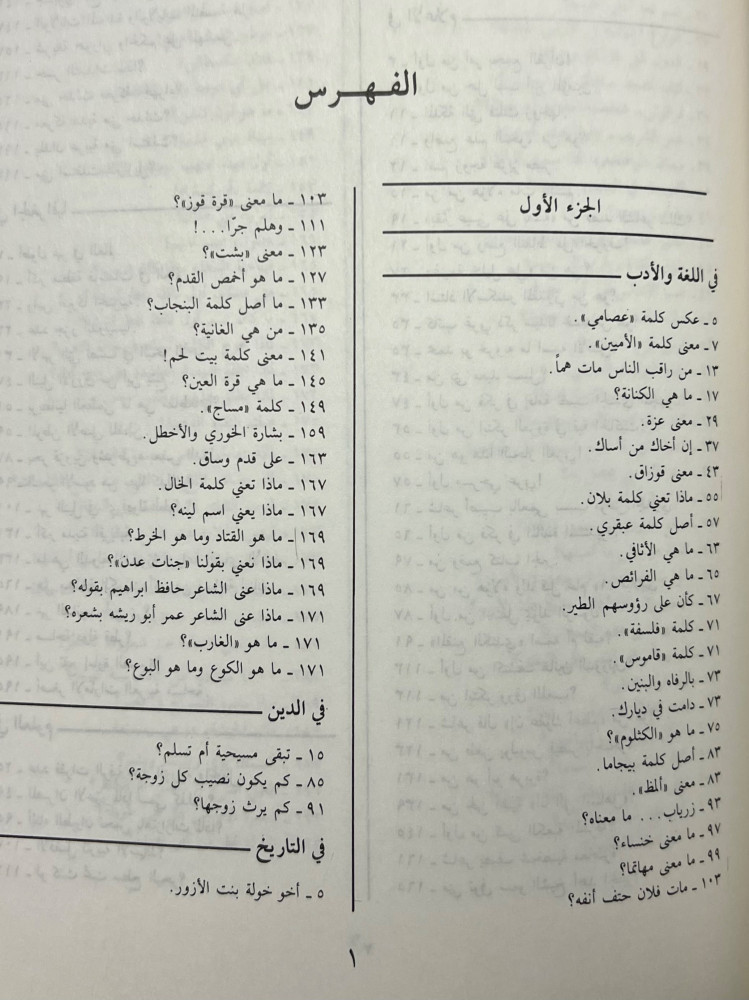 الفهرس
الجزء الأول
في اللغة والأدب
٥ ـ عكس كلمة «عصامي».
٧ ـ معنى كلمة «الأميين».
١٣ ـ من راقب الناس مات هماً.
١٧ ـ ما هي الكنانة؟
٢٩ ـ معنى عزة.
٣٧ ـ إن أخاك من أساك.
٤٣ ـ معنى قوزاق.
٥٥ ـ ماذا تعني كلمة بلان.
٥٧ ـ أصل كلمة عبقري.
٦٣ ـ ما هي الأثافي.
٦٥ ـ ما هي الفرائص.
٦٧ ـ كأن على رؤوسهم الطير.
٧١ ـ كلمة «فلسفة».
٧١ ـ كلمة «قاموس».
٧٣ ـ بالرفاه والبنين.
٧٣ ـ دامت في ديارك.
٧٥ ـ ما هو «الكثلوم»؟
٨٣ ـ أصل كلمة بيجاما.
٨٣ ـ معنى «ألمظ».
٩٣ ـ زرياب... ما معناه؟
٩٧ ـ ما معنى خنساء؟
٩٩ ـ ما معنى مهاتما؟
١٠٣ ـ مات فلان حتف أنفه؟
١٠٣ ـ ما معنى «قرة قوز»؟
١١١ ـ وهلم جرّا...!
١٢٣ ـ معنى «بشت»؟
١٢٧ ـ ما هو أخمص القدم؟
١٣٣ ـ ما أصل كلمة البنجاب؟
١٣٥ ـ من هي الغانية؟
١٤١ ـ معنى كلمة بيت لحم!
١٤٥ ـ ما هي قرة العين؟
١٤٩ ـ كلمة «مساج».
١٥٩ ـ بشارة الخوري والأخطل.
١٦٣ ـ على قدم وساق.
١٦٧ ـ ماذا تعني كلمة الخال.
١٦٧ ـ ماذا يعني اسم لينه؟
١٦٩ ـ ما هو القتاد وما هو الخرط؟
١٦٩ ـ ماذا نعني بقولنا «جنات عدن»؟
١٦٩ ـ ماذا عنى الشاعر حافظ ابراهيم بقوله؟
١٧١ ـ ماذا عنى الشاعر عمر أبو ريشه بشعره؟
١٧١ ـ ما هو «الغارب»؟
١٧١ ـ ما هو الكوع وما هو البوع؟
في الدين
١٥ ـ تبقى مسيحية أم تسلم؟
٨٥ ـ كم يكون نصيب كل زوجة؟
٩١ ـ كم يرث زوجها؟
في التاريخ
٥ ـ أخو خولة بنت الأزور.
١